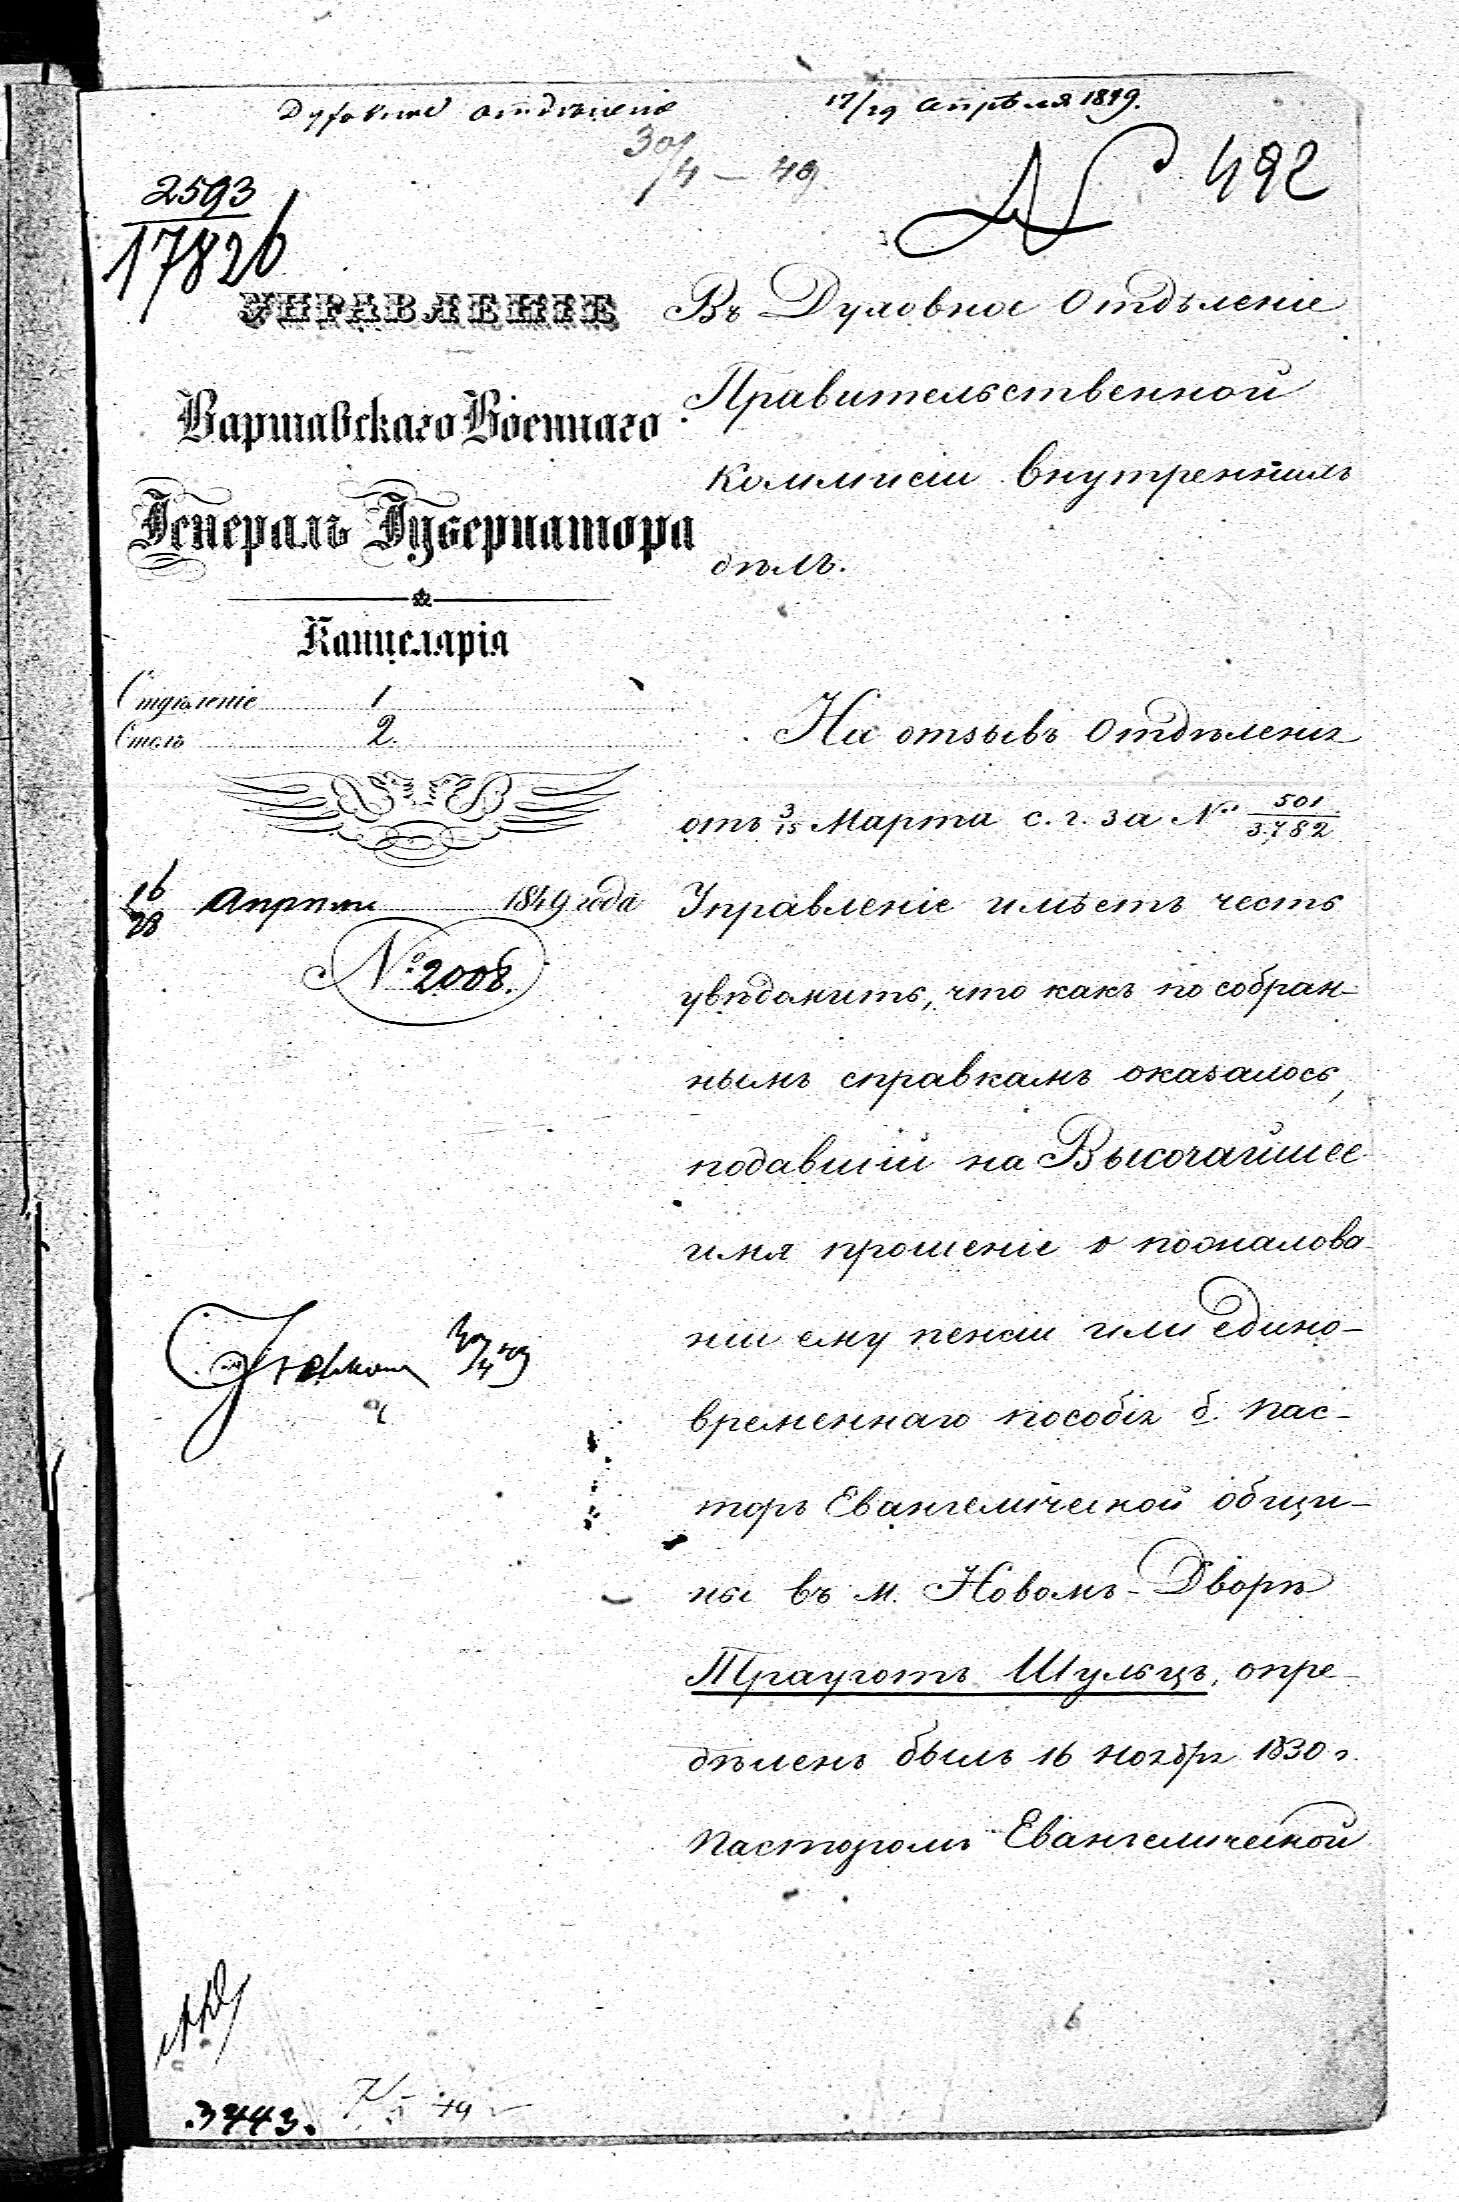 Духовное отдѣленіе
17/29 Апрѣля 1849.
30/4 – 49.
№ 492
2593
17826
УПРАВЛЕНІЕ
Варшавскаго Военнаго
Генералъ Губернатора
Канцелярія
Отдѣленіе 1
Столъ 2.
16/28 Апрѣля 1849 года
№ 2008.
Въ Духовное Отдѣленіе
Правительственной
Коммисіи Внутреннихъ
дѣлъ.
На отзывъ Отдѣленія
отъ 3/15 Марта с. г. за № 501/3782
Управленіе имѣетъ честь
увѣдомить, что какъ по собран-
нымъ справкамъ оказалось,
подавшій на Высочайшее
имя прошеніе о пожалова-
ніи ему пенсіи или едино-
временнаго пособія б. Пас-
торъ Евангелической общи-
ны въ м. Новомъ-Дворѣ
Трауготъ Шульцъ, опре-
дѣленъ былъ 16 Ноября 1830 г.
Пасторомъ Евангелической
30/4 49
3443.